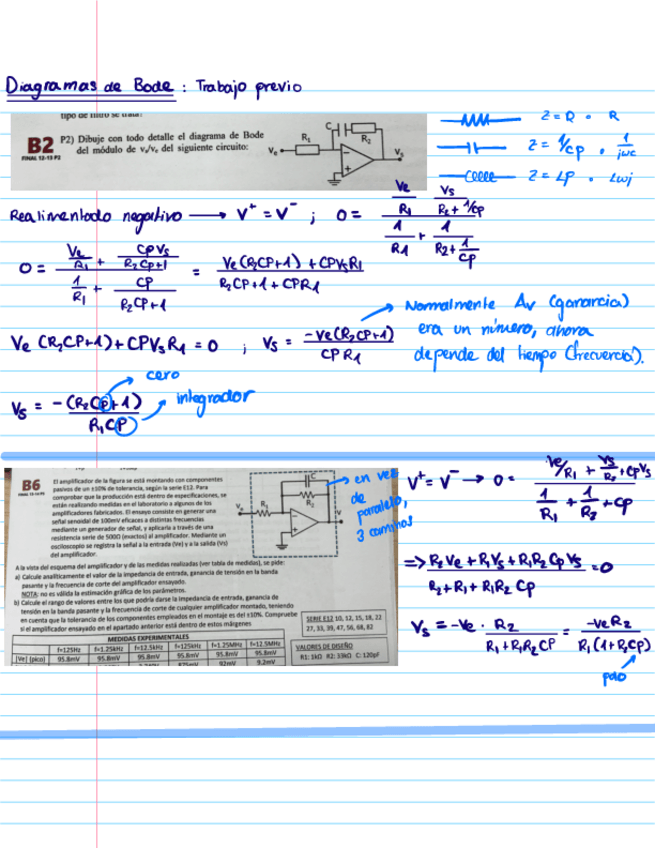 Diagramas de Bode : Trabajo previo
tipo de filtro se trata?
B2 P2) Dibuje con todo detalle el diagrama de Bode
FINAL 12-13 P2 del módulo de vs/ve del siguiente circuito:
Ve R1 C R2 Vs
Z = R • R
Z = 1/Cp • 1/jωc
Z = Lp • Lωj
Realimentado negativo → V+ = V- ; 0 = (Ve/R1 + Vs/(R2 + 1/Cp)) / (1/R1 + 1/(R2 + 1/Cp))
0 = (Ve/R1 + CPVs/(R2CP+1)) / (1/R1 + CP/(R2CP+1)) = (Ve(R2CP+1) + CPVsR1) / (R2CP+1+CPR1)
Normalmente Av (ganancia)
era un número, ahora
depende del tiempo (frecuencia).
Ve (R2CP+1) + CPVsR1 = 0 ; Vs = -Ve(R2CP+1) / CPR1
cero
integrador
Vs = -(R2Cp+1) / R1CP
B6
El amplificador de la figura se está montando con componentes
pasivos de un ±10% de tolerancia, según la serie E12. Para
comprobar que la producción está dentro de especificaciones, se
están realizando medidas en el laboratorio a algunos de los
amplificadores fabricados. El ensayo consiste en generar una
señal senoidal de 100mV eficaces a distintas frecuencias
mediante un generador de señal, y aplicarla a través de una
resistencia serie de 500Ω (exactos) al amplificador. Mediante un
osciloscopio se registra la señal a la entrada (Ve) y a la salida (Vs)
del amplificador.
C
en vez
de
paralelo,
3 caminos
A la vista del esquema del amplificador y de las medidas realizadas (ver tabla de medidas), se pide:
a) Calcule analíticamente el valor de la impedancia de entrada, ganancia de tensión en la banda
pasante y la frecuencia de corte del amplificador ensayado.
NOTA: no es válida la estimación gráfica de los parámetros.
b) Calcule el rango de valores entre los que podría darse la impedancia de entrada, ganancia de
tensión en la banda pasante y la frecuencia de corte de cualquier amplificador montado, teniendo
en cuenta que la tolerancia de los componentes empleados en el montaje es del ±10%. Compruebe
si el amplificador ensayado en el apartado anterior está dentro de estos márgenes
SERIE E12 10, 12, 15, 18, 22
27, 33, 39, 47, 56, 68, 82
MEDIDAS EXPERIMENTALES
f=125Hz f=1.25kHz f=12.5kHz f=125kHz f=1.25MHz f=12.5MHz
|Ve| (pico) 95.8mV 95.8mV 95.8mV 95.8mV 95.8mV 95.8mV
92mV 9.2mV
VALORES DE DISEÑO
R1: 1kΩ R2: 33kΩ C: 120pf
V+ = V- → 0 = (Ve/R1 + Vs/R2 + CpVs) / (1/R1 + 1/R2 + CP)
=> (R2Ve + R1Vs + R1R2CpVs) / (R2 + R1 + R1R2CP) = 0
Vs = -Ve · R2 / (R1 + R1R2CP) = -VeR2 / R1(1+R2CP)
polo